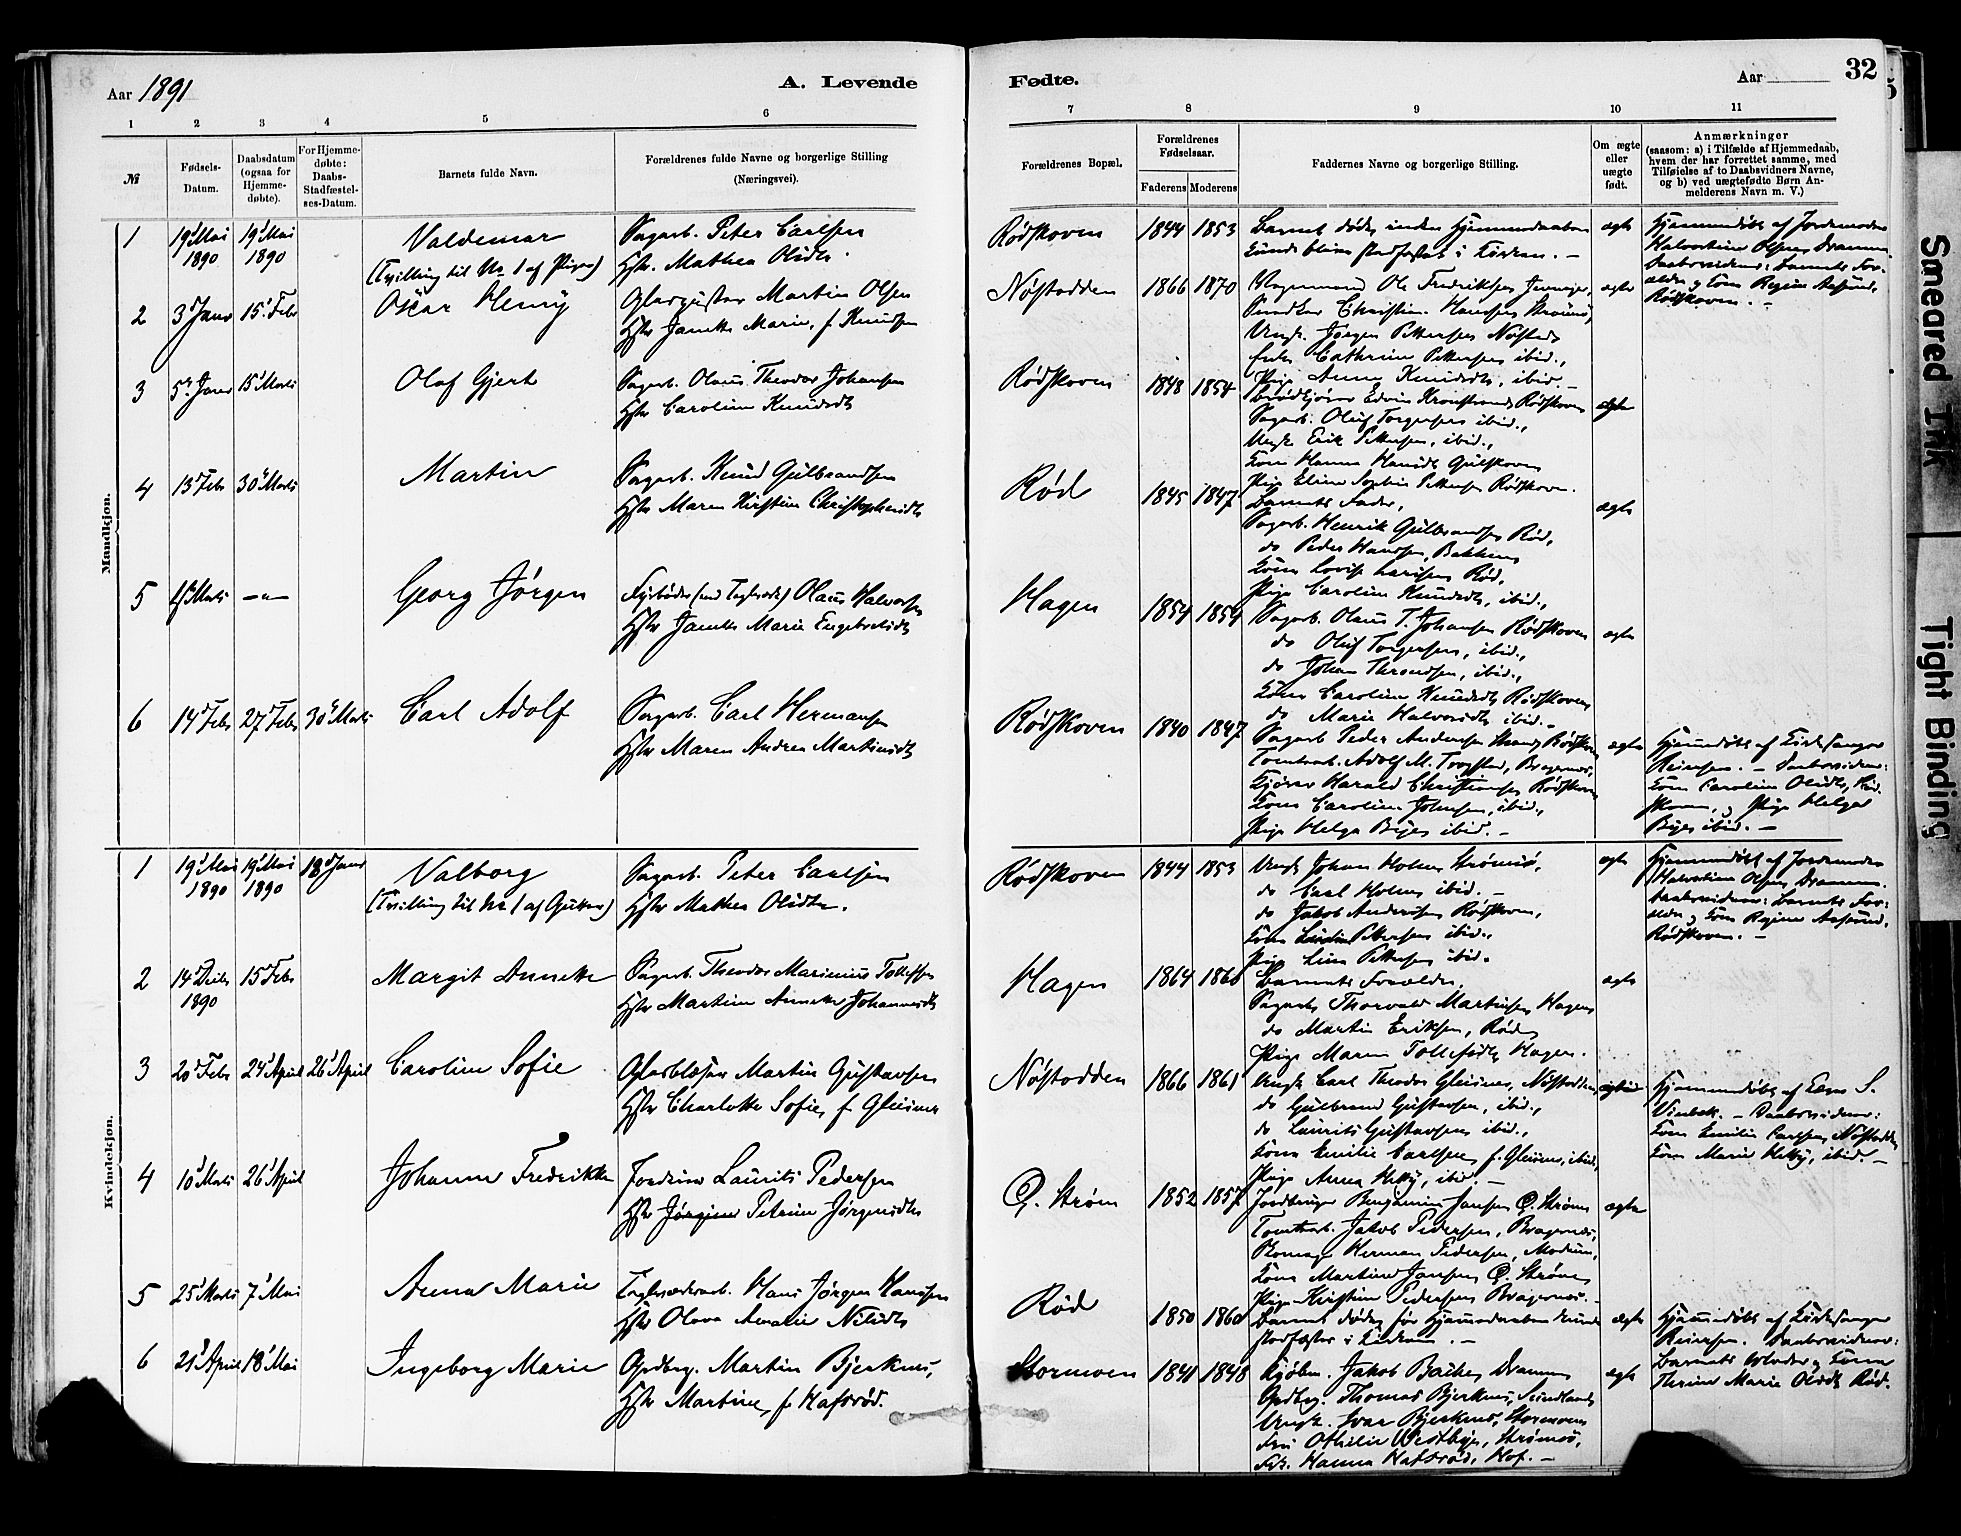 Aar 1891
A. Levende
Fødte.
Aar
32
1 2 3 4 5 6 7 8 9 10 11
№
Fødsels-
Datum.
Daabsdatum
(ogsaa for
Hjemme-
døbte).
For Hjemme-
døbte:
Daabs-
Stadfæstel-
ses-Datum.
Barnets fulde Navn.
Forældrenes fulde Navne og borgerlige Stilling
(Næringsvei).
Forældrenes Bopæl.
Forældrenes
Fødselsaar.
Faderens Moderens
Faddernes Navne og borgerlige Stilling.
Om ægte
eller
uægte
født.
Anmærkninger
(saasom: a) i Tilfælde af Hjemmedaab,
hvem der har forrettet samme, med
Tilføielse af to Daabsvidners Navne,
og b) ved uægtefødte Børn An-
melderens Navn m. V.)
Mandkjøn.
1 19 Mai 1890 19 Mai 1890 Valdemar
(Tvilling til No 1 af Piger)
Sagarb. Peter Carlsen
Hstr. Mathea Olsdtr.
Rødskoven 1844 1853
Barnet døde inden Hjemmedaaben
kunde blive stadfæstet i Kirken. –
ægte
Hjemmedøbt af Jordemoder
Halvortine Olsen, Drammen.
Daabsvidner: Barnets For-
ældre og Kone Regine Aaserud,
Rødskoven. –
2 3 Janr 15 Febr Oscar Henry
Glaspuster Martin Olsen
Hstr Janette Marie, f. Knudsen
Nøstodden 1866 1870
Ole Fredriksen
Christian Hansen Strømsø,
Ungk. Jørgen Pettersen Nøsted
Enke Cathrine Pettersen ibid.,
Pige Anna Knudsdtr, ibid. –
ægte
3 5 Janr 15 Marts Olaf Gjert
Sagarb. Olaus Theodor Johansen
Hstr Caroline Knudsdtr
Rødskoven 1848 1854
Edvin Rødskoven
Sagarb. Oluf Torgersen ibid.,
Ungk Erik Pettersen, ibid.,
Kone Hanna Hansdtr Gulskoven
Pige Eline Sophie Pettersen Rødskoven.
ægte
4 13 Febr 30 Marts Martin
Sagarb. Knud Gulbrandsen
Hstr Maren Kirstine Christophersdtr
Rød 1845 1847
Barnets Fader,
Sagarb. Henrik Gulbrandsen Rød,
do Peder Hansen, Bakken
Kone Lovise Larsen Rød,
Pige Caroline Knudsdtr, ibid.,
ægte
5 Marts –"– Georg Jørgen
Fyrbøder (ved Teglværk) Olaus Halvorsen
Hstr Janette Marie Engebretsdtr
Hagen 1854 1854
Sagarb. Olaus T. Johansen Rødskoven
do Oluf Torgersen, ibid.,
do Johan Throndsen, ibid.,
Kone Caroline Knudsdtr Rødskoven
do Marie Halvorsdtr ibid. –
ægte
6 14 Febr 27 Febr 30 Marts Carl Adolf
Sagarb. Carl Hermansen
Hstr Maren Andrea Martinsdtr
Rødskoven 1840 1847
Sagarb Peder Andersen Rødskoven
Tomtearb. Adolf M. Trogstad, Bragernes,
Kjører Harald Christiansen Rødskoven
Kone Caroline Johnsen, ibid.,
Pige Helga Byes ibid. –
ægte
Hjemmedøbt af Kirkesanger
Reiersen. – Daabsvidner:
Kone Caroline Olsdtr, Rød-
skoven, og Pige Helga
Byes ibid. –
Kvindekjøn.
1 19 Mai 1890 19 Mai 1890 18 Janr Valborg
(Tvilling til No 1 af Gutter)
Sagarb. Peter Carlsen
Hstr Mathea Olsdtr.
Rødskoven 1844 1853
Ungk Johan Holm Strømsø,
do Carl Holm ibid. –
do Jakob Andersen Rødskoven,
Kone Pettersen ibid.,
Pige Lina Pettersen ibid.
ægte
Hjemmedøbt af Jordemoder
Halvortine Olsen, Drammen.
Daabsvidner: Barnets For-
ældre og Kone Regine Aaserud,
Rødskoven. –
2 14 Decbr 1890 15 Febr Margit Annette
Sagarb. Theodor Marinius Tollefsen
Hstr Martine Annette Johannesdtr
Hagen 1864 1860
Barnets Forældre,
Sagarb Thorvald Martinsen Hagen
do Martin Eriksen, Røden
Pige Maren Tollefsdtr Hagen.
ægte
3 20 Febr 24 April 26 April Caroline Sofie
Glasblæser Martin Gustavsen
Hstr Charlotte Sofie, f. Gleisner
Nøstodden 1866 1861
Ungk Carl Theodor Gleisner, Nøstodden
do Gulbrand Gustavsen, ibid.,
do Laurits Gustavsen ibid.,
Kone Emilie Carlsen, f. Gleisner, ibid.,
Pige Anna Hetty, ibid. –
ægte
Hjemmedøbt af S.
– Daabsvidner:
Kone Emilie Carlsen, Nøstodden
Kone Marie Hetty, ibid. –
4 10 Marts 26 April Johanne Fredrikke
Jordbr. Laurits Pedersen
Hstr Jørgine Petrine Jørgensdtr
Ø. Strøm 1852 1857
Jordbruger Benjamin Jansen Ø. Strøm
Tomtearb. Jakob Pedersen, Bragernes,
Skomager Herman Pedersen, Modum,
Kone Martine Jansen Ø. Strøm
Pige Kirstine Pedersen Bragernes. –
ægte
5 25 Marts 7 Mai Anna Marie
Teglværksarb. Hans Jørgen Hansen
Hstr Olava Amalie Nilsdtr
Rød 1850 1860
Barnet døde, før Hjemmedaaben kunde
stadfæstes i Kirken. –
ægte
Hjemmedøbt af Kirkesanger
Reiersen. Daabsvidner:
Barnets Moder og Kone
Thrine Marie Olsdtr Rød.
6 21 April 18 Mai Ingeborg Marie
Grdbrg. Martin Bjerknes,
Hstr Martine, f. Hafsrød.
Stormoen 1841 1848
Kjøbm. Jakob Bache, Drammen
Grdbrg. Thomas Bjerknes, Sundland
Ungk. Ivar Bjerknes, Stormoen
Fru Othilie Westbye, Strømsø,
Frk. Hanna Hafsrød, Hof. –
ægte
Smeared Ink
Tight Binding